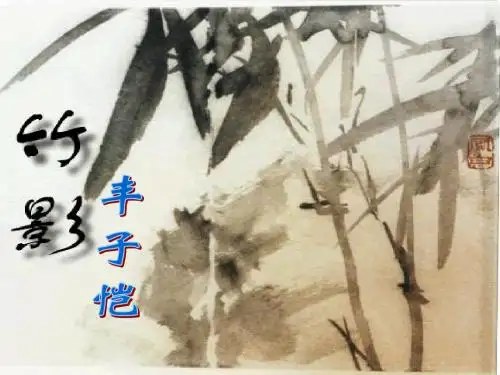 竹影
丰子恺